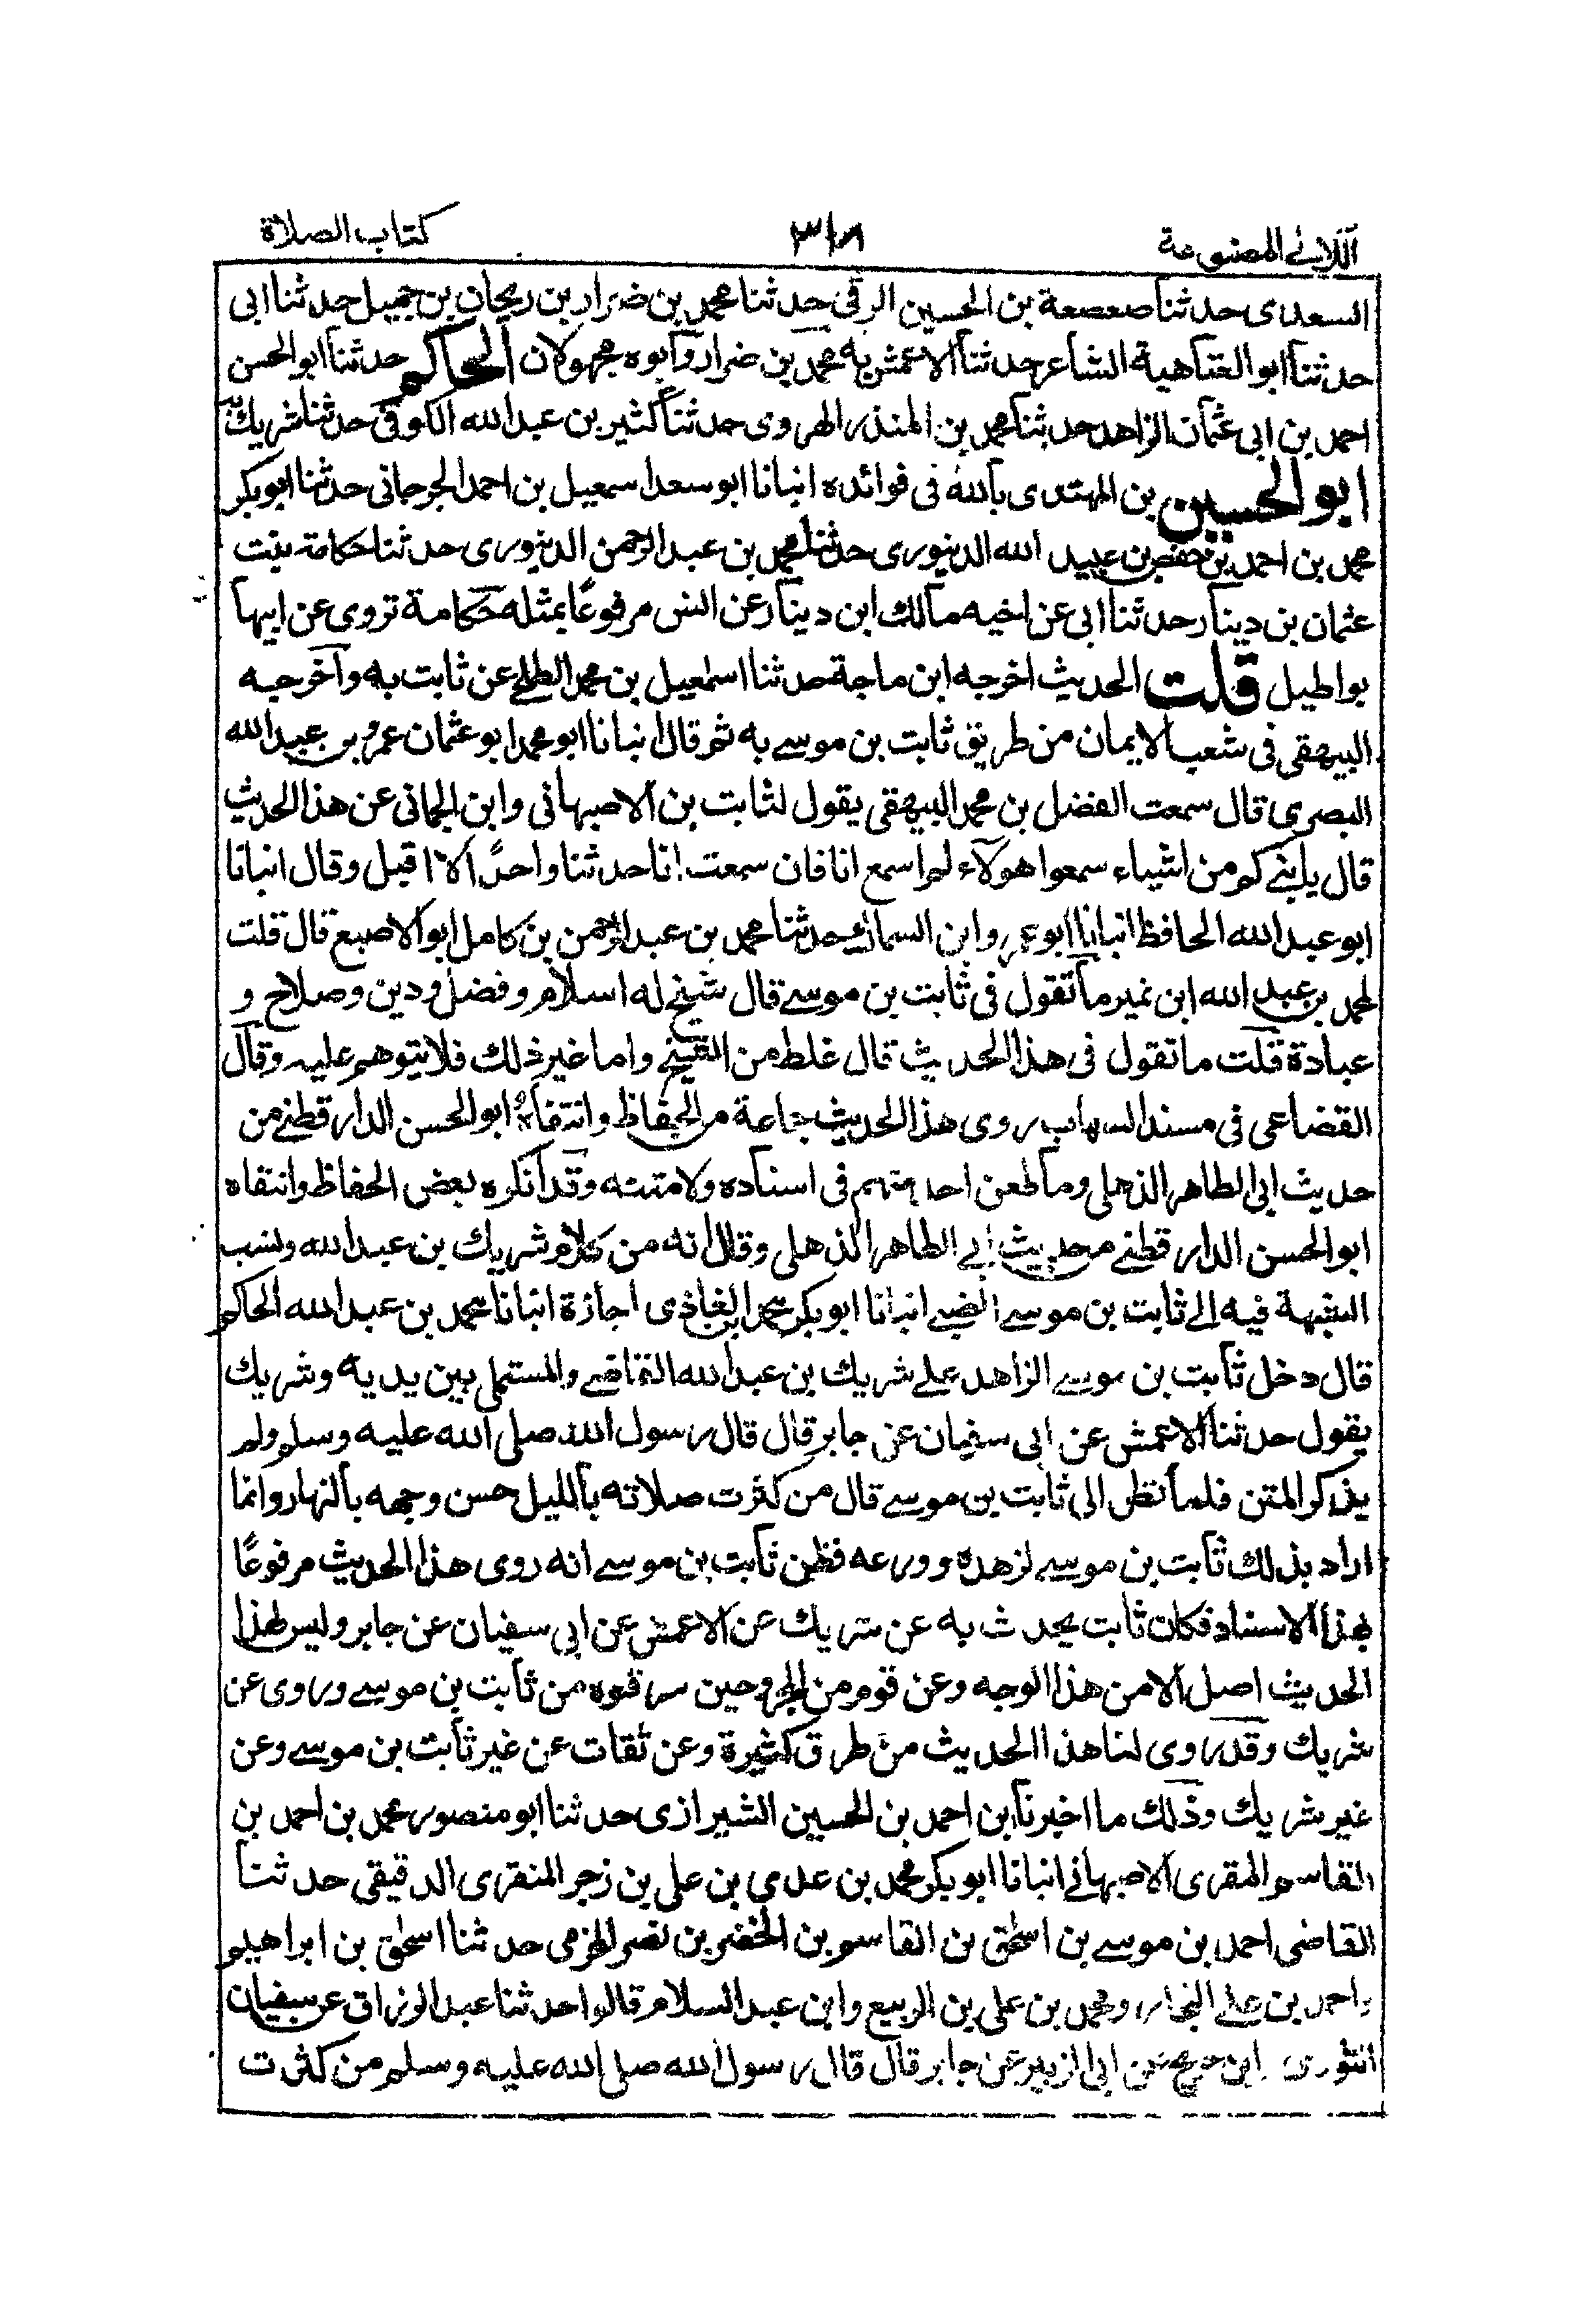 اللآلئ المصنوعة
٣١٨
كتاب الصلاة
السعدى حدثنا صعصعة بن الحسين الرقى حدثنا محمد بن ضرار بن ريحان بن جميل حدثنا ابى
حدثنا ابو العتاهية الشاعر حدثنا الاعمش به محمد بن ضرار وابوه مجهولان الحاكم حدثنا ابو الحسن
احمد بن ابى عثمان الزاهد حدثنا محمد بن المنذر الهروى حدثنا كثير بن عبد الله الكوفى حدثنا شريك به
ابو الحسين بن المهتدى بالله فى فوائده انبانا ابو سعد اسمعيل بن احمد الجرجانى حدثنا ابو بكر
محمد بن احمد بن حفص بن عبيد الله الدينورى حدثنا محمد بن عبد الرحمن الدينورى حدثنا حكامة بنت
عثمان بن دينار حدثنا ابى عن اخيه مالك ابن دينار عن انس مرفوعًا بمثله حكامة تروى عن ابيها
بواطيل قلت الحديث اخرجه ابن ماجة حدثنا اسمعيل بن محمد الطلحے عن ثابت به واخرجه
البيهقى فى شعب الايمان من طريق ثابت بن موسے به ثم قال انبانا ابو محمد ابو عثمان عمرو بن عبد الله
البصرى قال سمعت الفضل بن محمد البيهقى يقول لثابت بن الاصبهانى وابن الحمانى عن هذا الحديث
قال يا بنے كم من اشياء سمعوا هولاء لم اسمع انا فان سمعت انا حدثنا واحدًا الا اقبل وقال انبانا
ابو عبد الله الحافظ انبانا ابو عمرو ابن السماك حدثنا محمد بن عبد الرحمن بن كامل ابو الاصبع قال قلت
لمحمد بن عبد الله ابن نمير ما تقول فى ثابت بن موسے قال شيخ له اسلام وفضل ودين وصلاح و
عبادة قلت ما تقول فى هذا الحديث قال غلط من الشيخ واما غير ذلك فلا يتوهم عليه وقال
القضاعى فى مسند الشهاب روى هذا الحديث جماعة من الحفاظ وانتقاه ابو الحسن الدار قطنے من
حديث ابى الطاهر الذهلى وما طعن احد منهم فى اسناده ولا متنه وقد انكره بعض الحفاظ وانتقاه
ابو الحسن الدار قطنے من حديث ابے الطاهر الذهلى وقال انه من كلام شريك بن عبد الله ونسب
الشبهة فيه الے ثابت بن موسے الضبے انبانا ابو بكر محمد بن الغاذى اجازة انبانا محمد بن عبد الله الحاكم
قال دخل ثابت بن موسے الزاهد علے شريك بن عبد الله القاضے والمستملى بين يديه وشريك
يقول حدثنا الاعمش عن ابى سفيان عن جابر قال قال رسول الله صلى الله عليه وسلم ولم
يذكر المتن فلما نظر الى ثابت بن موسے قال من كثرت صلاته بالليل حسن وجهه بالنهار وانما
اراد بذلك ثابت بن موسے لزهده وورعه فظن ثابت بن موسے انه روى هذا الحديث مرفوعًا
بهذا الاسناد فكان ثابت يحدث به عن شريك عن الاعمش عن ابى سفيان عن جابر وليس لهذا
الحديث اصل الا من هذا الوجه وعن قوم من المجروحين سرقوه من ثابت بن موسے وروى عن
شريك وقد روى لنا هذا الحديث من طرق كثيرة وعن ثقات عن غير ثابت بن موسے وعن
غير شريك وذلك ما اخبرنا ابن احمد بن الحسين الشيرازى حدثنا ابو منصور محمد بن احمد بن
القاسم المقرى الاصبهانے انبانا ابو بكر محمد بن عدى بن على بن زحر المنقرى الدقيقى حدثنا
القاضى احمد بن موسے بن اسحٰق بن القاسم بن الخضر بن نصر المخزمى حدثنا اسحٰق بن ابراهيم
واحمد بن علے النجار ومحمد بن على بن الربيع وابن عبد السلام قالوا حدثنا عبد الرزاق عن سفيان
الثورى ابن جريج عن ابى الزبير عن جابر قال قال رسول الله صلى الله عليه وسلم من كثرت